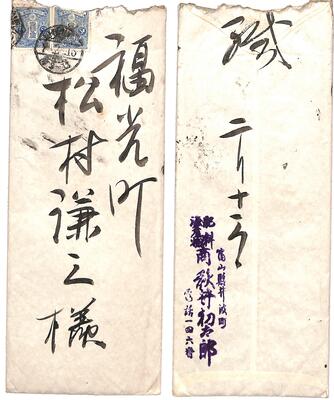 福光町
松村謙三様
緘
二月十六日
富山縣井波町
肥料
商
初太郎
電話一四六番